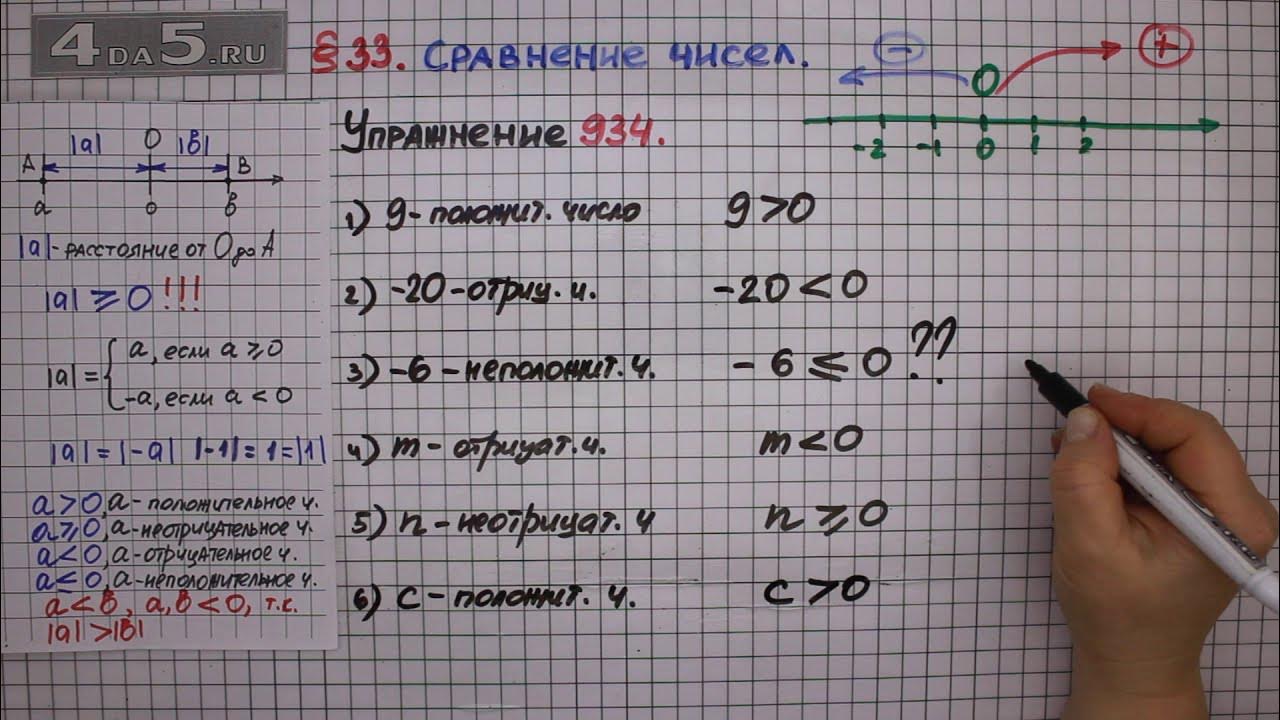 4DA5.RU
§ 33. Сравнение чисел.
− 0 +
-2 -1 0 1 2
Упражнение 934.
1) 9 - положит. число 9 > 0
2) -20 - отриц. ч. -20 < 0
3) -6 - неположит. ч. -6 ⩽ 0 ??
4) m - отрицат. ч. m < 0
5) n - неотрицат. ч n ⩾ 0
6) c - положит. ч. c > 0
|a| 0 |в|
A B
a 0 в
|a| - расстояние от 0 до A
|a| ⩾ 0 !!!
|a| = { a, если a ⩾ 0
-a, если a < 0
|a| = |-a| |-1| = 1 = |1|
a > 0, a - положительное ч.
a ⩾ 0, a - неотрицательное ч.
a < 0, a - отрицательное ч.
a ⩽ 0, a - неположительное ч.
a < в, a, в < 0, т.к.
|a| > |в|